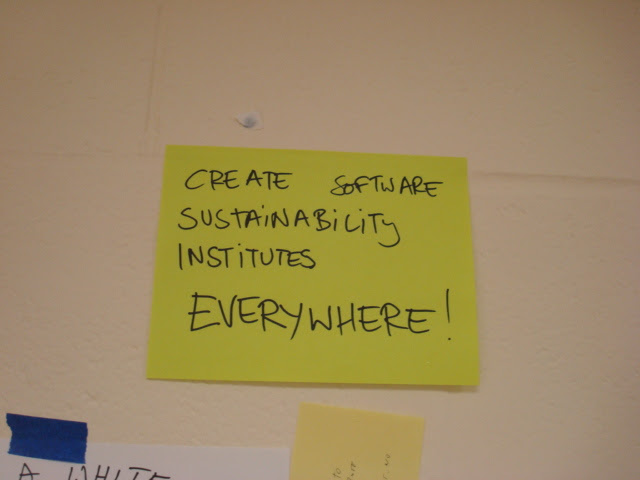 CREATE SOFTWARE
SUSTAINABILITY
INSTITUTES
EVERYWHERE!
A WHITE